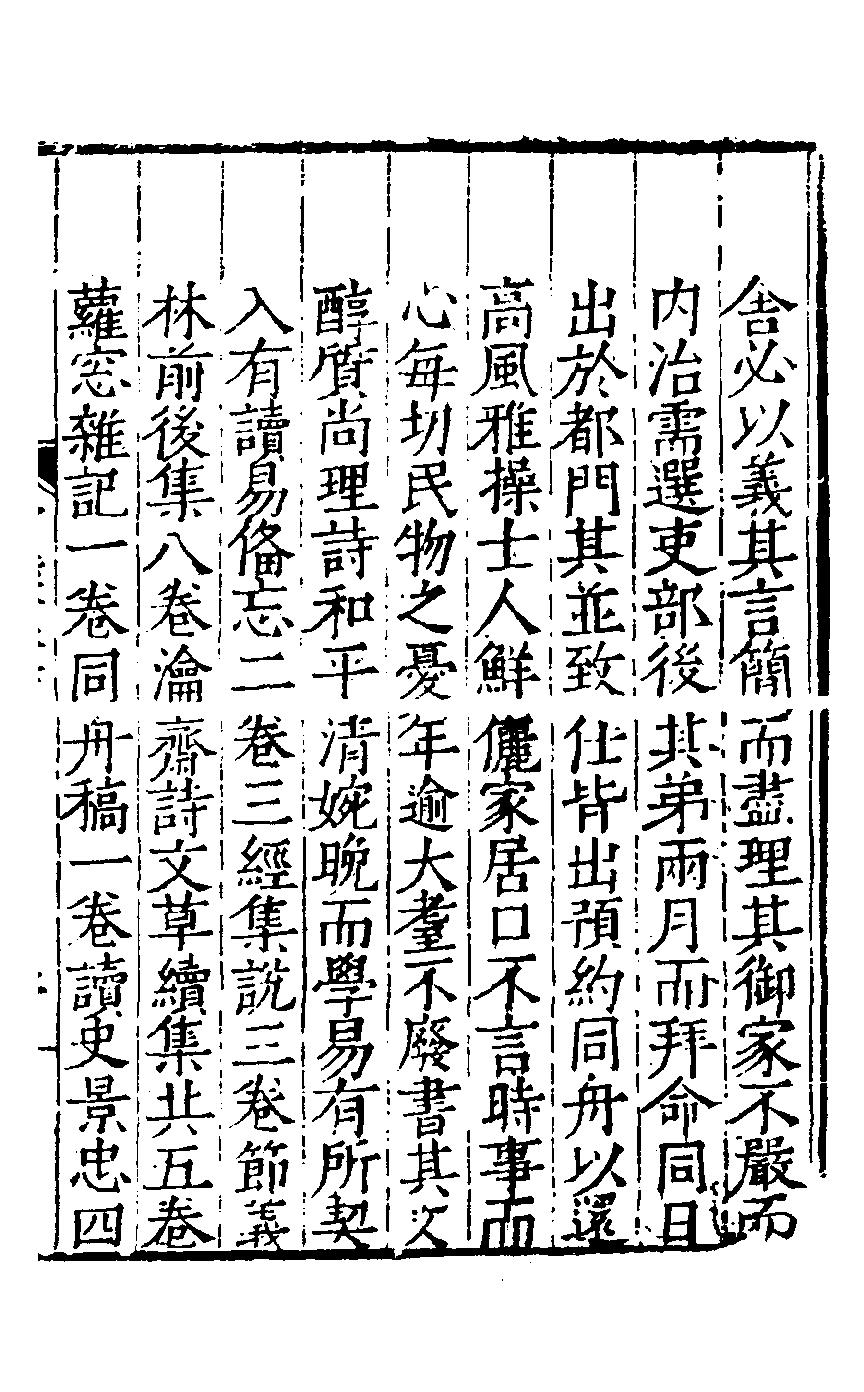 舍必以義其言簡而盡理其御家不嚴而
内治需選吏部後其弟兩月而拜命同日
出於都門其並致仕皆出預約同舟以還
高風雅操士人鮮儷家居口不言時事而
心每切民物之憂年逾大耋不廢書其文
醇質尚理詩和平清婉晚而學易有所契
入有讀易俻忘二卷三經集說三卷節義
林前後集八卷瀹齋詩文草續集共五卷
蘿窓雜記一卷同舟稿一卷讀史景忠四